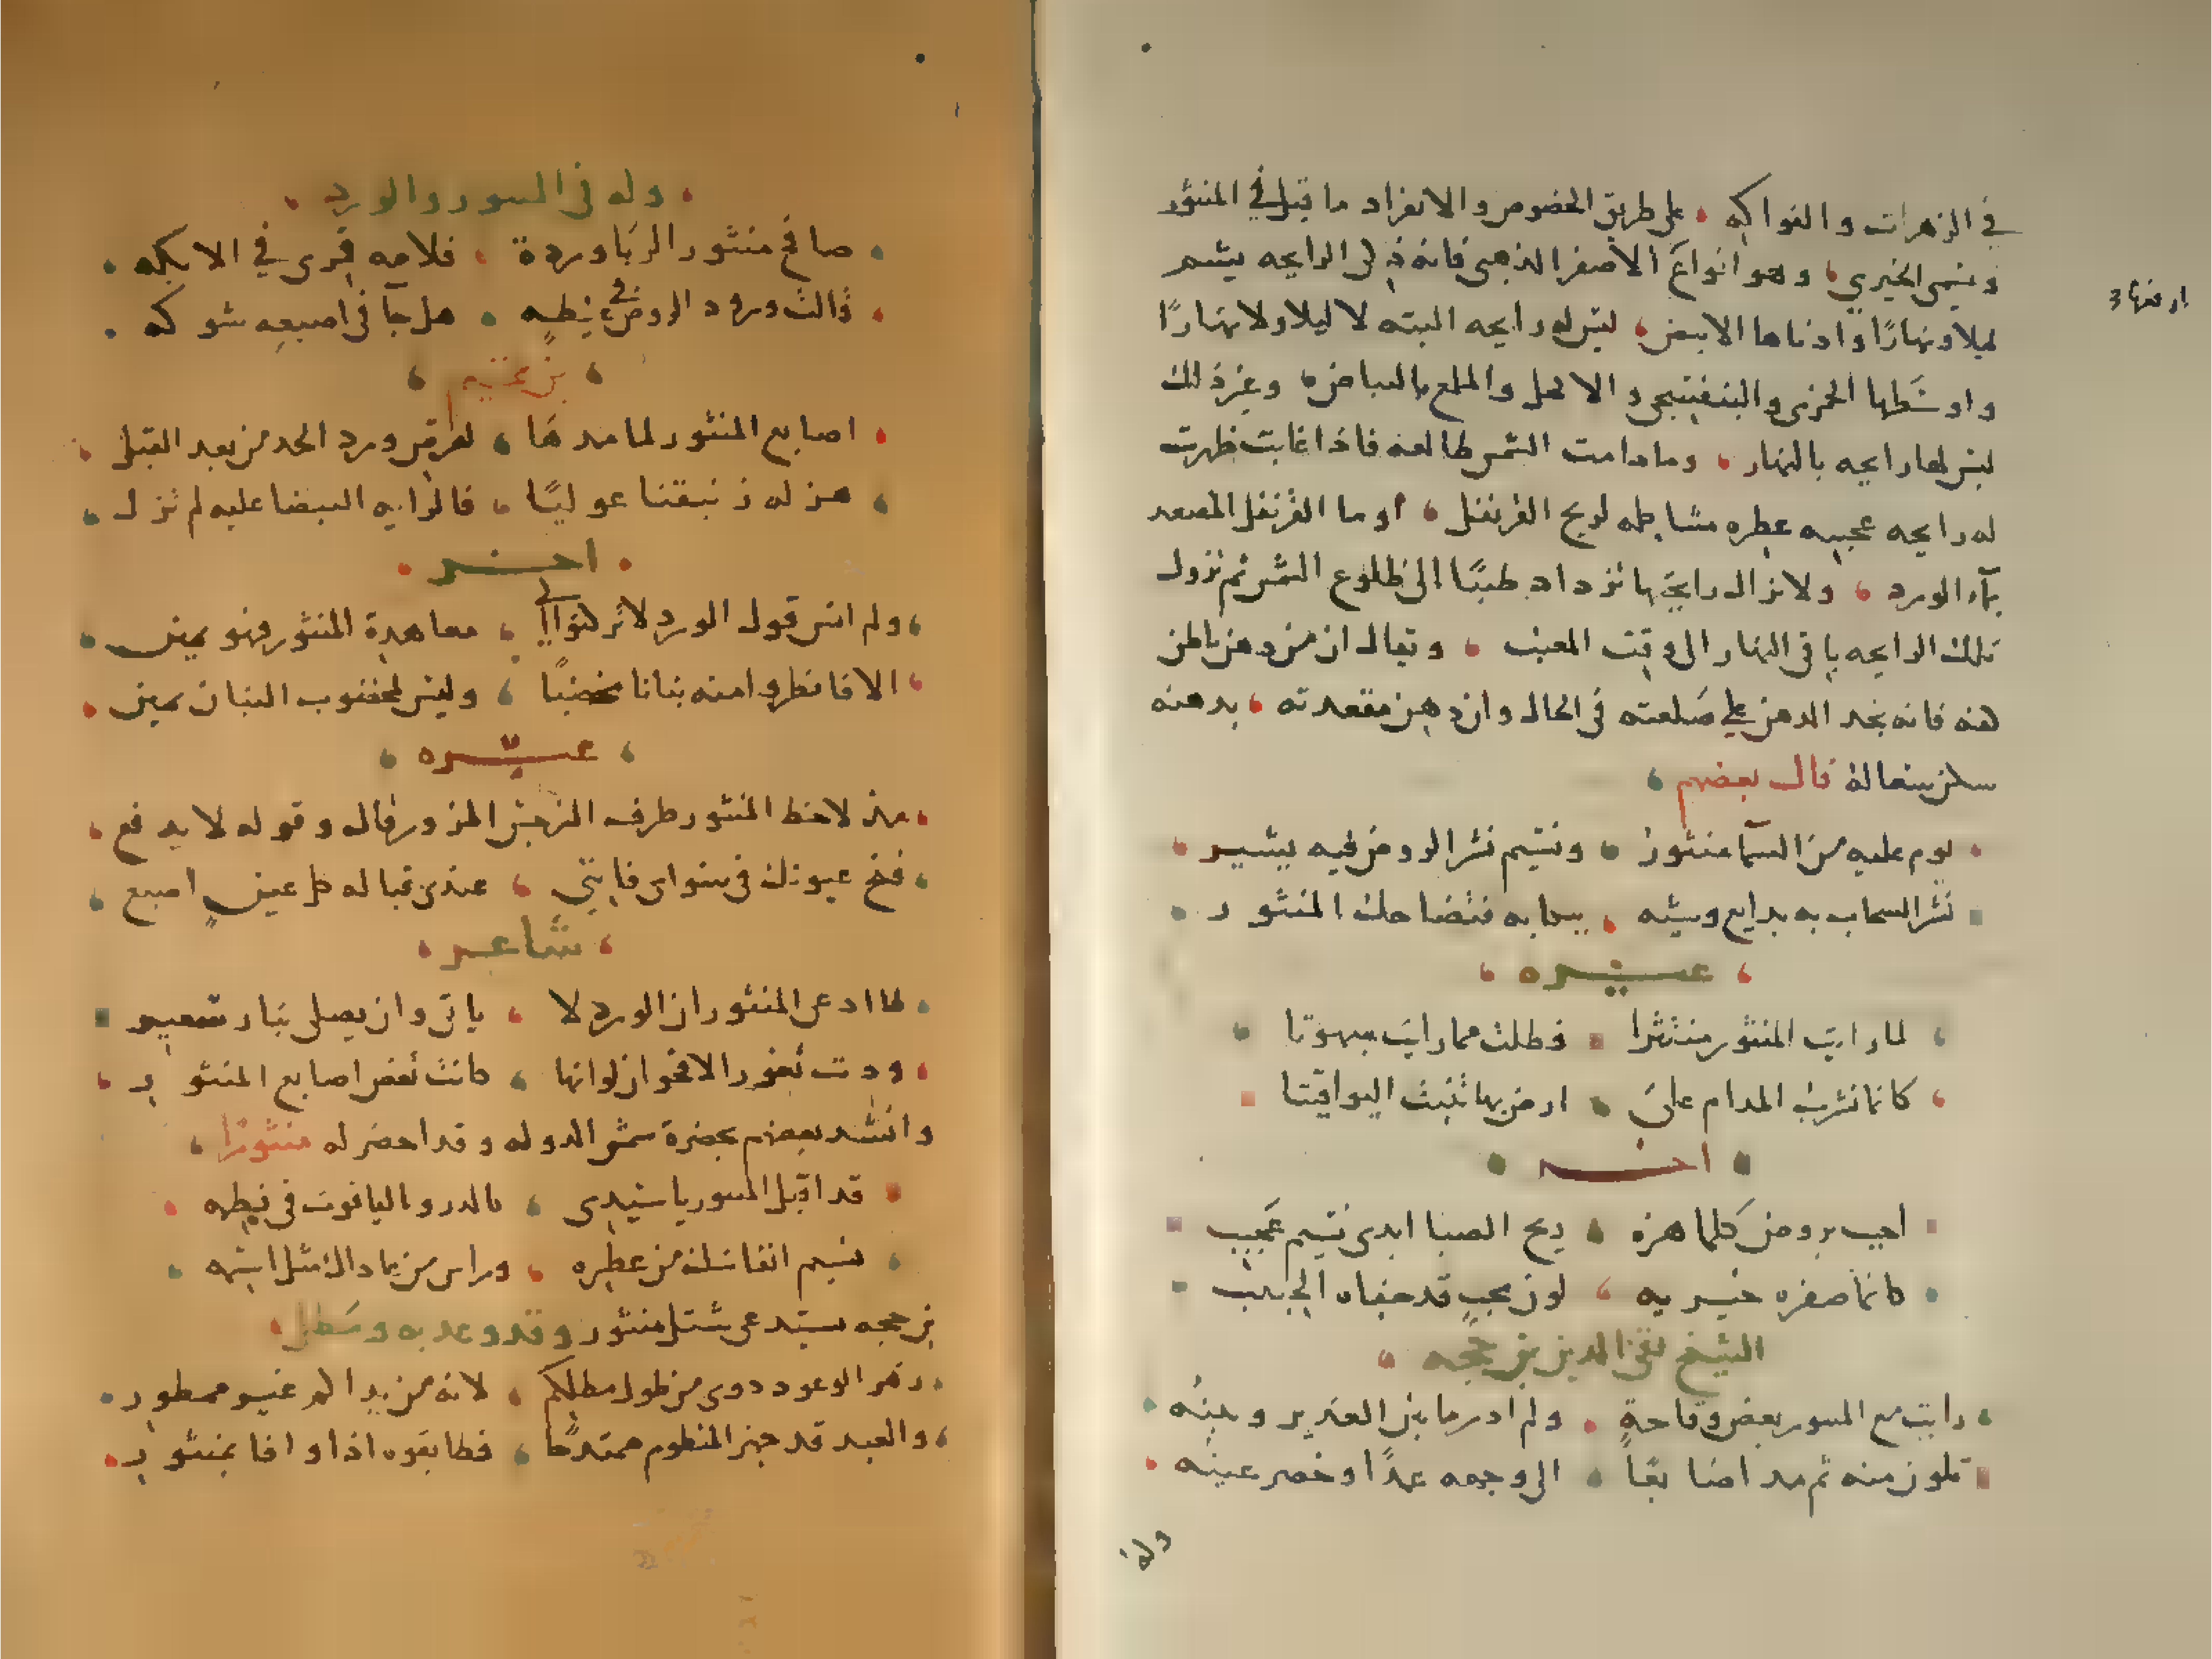 في الزهرات والفواكه على طريق الخصوص والانفراد ما قيل في المنثور
ويسمى الخيري وهو انواع الاصفر الذهبي فانه ذكى الرايحه يشم
ليلا ونهارًا وادناها الابيض ليس له رايحه البته لا ليلا ولا نهارًا
واوسَطها الخزمى والبنفسجى والاكحل والملمع بالبياض وغير ذلك
ليس لها رايحه بالنهار وما دامت الشمس طالعه فاذا غابت ظهرت
له رايحه عجيبه عطره مشابهه لريح القرنفل او ما القرنفل المصعد
بمآء الورد ولا تزال رايحتها تزداد طيبًا الى طلوع الشمس ثم تزول
تلك الرايحه باقى النهار الى وقت المغيب ويقال ان من دهن باطن
فانه يجد الدهن على صَلعته في الحال وان دهن مقعدته بدهنه
قال بعضهم
يوم عليه من السمآ منثورُ ونسيم نشر الروض فيه يشير
نثر السحاب به بدايع وشيه فتضاحك المنثور
غيره
لما رايت المنثور منتثرا وظلت مما رايت مبهوتا
كانما نشرب المدام على ارض بها تنبت اليواقيتا
اخر
احبب بروض كلما هزه ريح الصبا ابدى نسيم عَجيب
كانما صفره خيريه لون محبٍ قد جفاه الحبيب
الشيخ تقى الدين بن حجه
رايت مع المنثور بعض وقاحةٍ ولم ادر ما بين الغدير وبينُه
تلون منه ثم مد اصابعًا الى وجهه عمدًا وخصر عينُه
وله
وله في المنثور والورد
صافح منثور الربَا ورده فلامه قمرى في الايكه
قالت ورود الروض في غيظه هل جآ في اصبعه شوكه
بن تميم
اصابع المنثور لما مدها لقرص ورد الخد من بعد القبل
هز له زنبقنا عواليًا فالرايه البيضا عليه لم تزل
اخر
ولم انس قول الورد لا تركنوا الى معاهدة المنثور فهو يمين
الا فانظروا منه بنانا مخضبًا وليس لمخضوب البنان يمين
غيره
مذ لاحظ المنثور طرف النرجس المزور قال وقوله لا يدفع
فتح عيونك فى سواى فاننى عندى قباله كل عينٍ اصبع
شاعر
لما ادعى المنثور ان الورد لا ياتى وان يصلى بنار سعير
ودت ثغور الاقحوان لو انها كانت تعض اصابع المنثور
وانشد بعضهم بحضرة شمس الدوله وقد احضر له منثورًا
قد اقبل المنثور يا سيدى كالدر والياقوت فى نظمه
نسيم انفاسك من عطره وراس من عاداك مثل اسمه
بن حجه يستدعى شتل منثور وقد وعد به وسَطل
زهر الوعود ذوى من طول مطلكم لانه من نداكم غير ممطور
والعبد قد جهز المنظوم ممتدحًا فطابقوه اذا وافا بمنثور